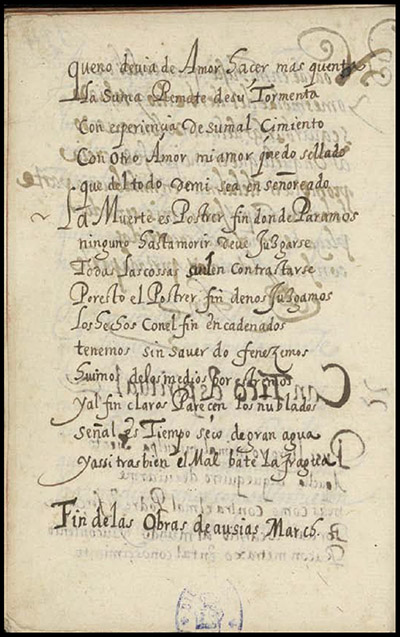 queno deuia de Amor hacer mas quenta
La suma Remate desu Tormenta
Con esperiençia desumal Cimiento
Con otro Amor mi amor quedo sellado
que del todo demi sea en señoreado
La Muerte es Postrer fin donde Paramos
ninguno hastamorir deue Juzgarse
Todas lascossas suelen Contrastarse
Poresto el Postrer fin denos Juzgamos
los hechos Conel fin encadenados
tenemos sin sauer do feneçemos
huimos delos medios por
yal fin claros Pareçen los nublados
señal es Tiempo seco de gran agua
yassi tras bien el Mal bate La fragua
Fin de las Obras de ausias March.